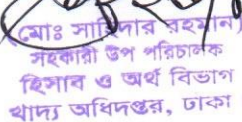 (মোঃ সাহিদার রহমান)
সহকারী উপ পরিচালক
হিসাব ও অর্থ বিভাগ
খাদ্য অধিদপ্তর, ঢাকা